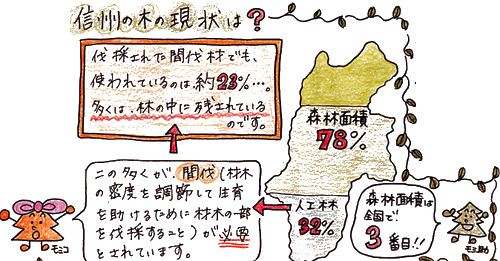 信州の木の現状は?
伐採された間伐材でも、
使われているのは、約23%…。
多くは、林の中に残されている
のです。
森林面積
78%
この多くが、間伐(林木
の密度を調節して生育
を助けるために林木の一部
を伐採すること)が必要
とされています。
人工林
32%
森林面積は
全国で!
3番目!!
モニコ